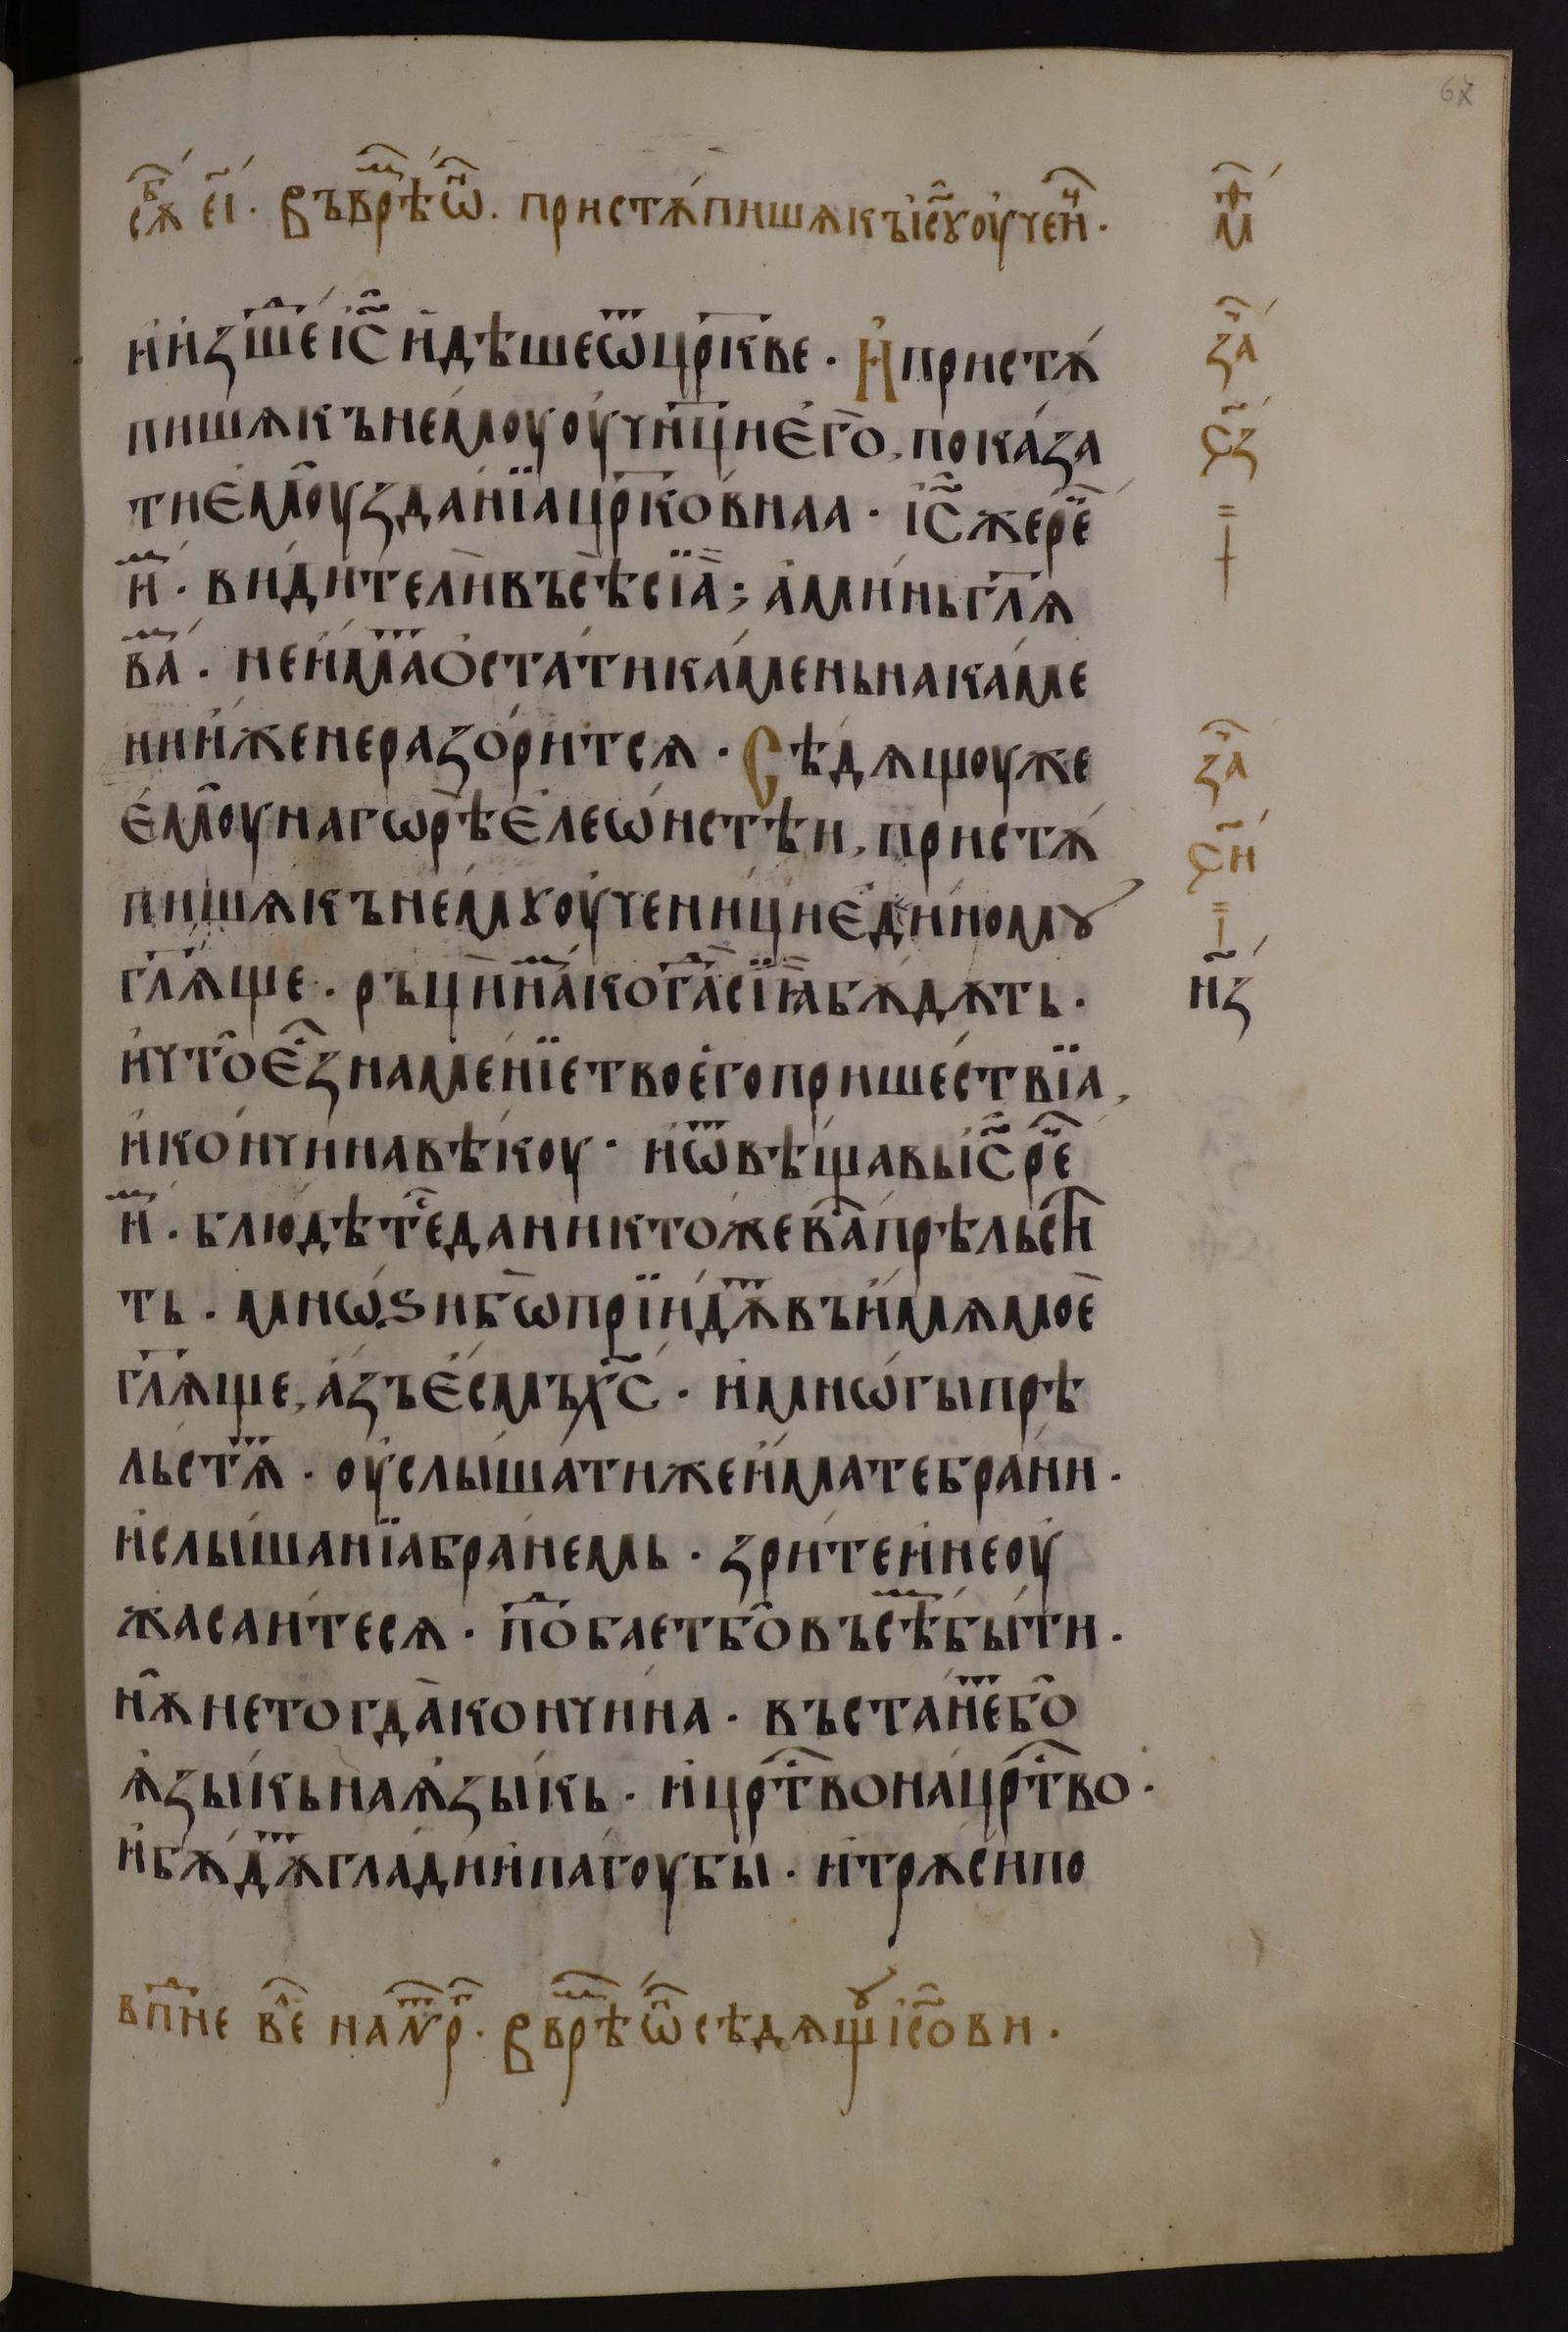 сѫ҇б е҃і. Въврѣⷨ ѡ҇н. пристѫ́пишѧкъіс҃ꙋоу҆чени҇ⷦ.
и҆и҆зше́ⷣ і҆с҃ и҆дѣшеѿцр҃кве. И҆пристѫ́
пишѧкънемоу оу҆чн҃цие҆го̀, пока́за
тие҆моу̑зда́нїацр҃ко́внаа. і҆с҃жерⷱ҇е
и҆ⷨ. ви́дителѝвъсѣ̀сїа̀; а҆ми́ньгл҃ѧ
ва́ⷨ. неи҆́маⷮо҆ста́тика́меньнака́ме
ни и҆́женеразо́ритсѧ. Сѣдѧщоуже
е҆моу̑нагѡрѣ̀е҆леѡ́нстѣи, пристѫ́
пишѧкънемꙋоу҆ченици҆е҆ди́номꙋ
гл҃ѫ́ще. ръцѝна́ⷨкога̀ⷣсїа̀бѫ́дѫть.
и҆что̑е҆ⷭ҇зна́менїетвое҆гоприше́ствїа,
и҆кончи́навѣ́коу. и҆ѿвѣща́вьі҆с҃рⷱ҇е
и҆ⷨ. блюдѣ́теⷭ҇даникто́жева̀ⷭ҇прѣльсти҇
ть. мнѡ́ѕибѡ̀прїи́дѫⷮвъи҆́мѧмоѐ
гл҃ѫ́ще, а҆́зъе҆́смъх҃с. и҆мнѡ́гыпрѣ
льстѧⷮ. оу҆слы́шатижеи҆́матебра́ни.
и҆слы́шанїабра́немь. зри́теи҆неоу҆
жаса́итесѧ. поⷣбаетбо̑въсѣⷨбы́ти.
нѫ̑нетогда̀кончи́на. въста́неⷮбо̑
ѧ҆зы́кьнаѧ҆зы́кь. и҆црⷭ҇твонацрⷭ҇тво.
и҆бѫ́дѫⷮгла́дии҆па́гоубы. и҆трѫ́сипо
впⷩ҇не ве҇ⷧ наⷮꙋтр҇. Ввр҇ѣⷨѡ҇нсѣдѧщꙋіс҃ови.
м҇ⷴ
за҇ⷱ
ч҃з
за҇ⷱ
ч҃и
н҃з